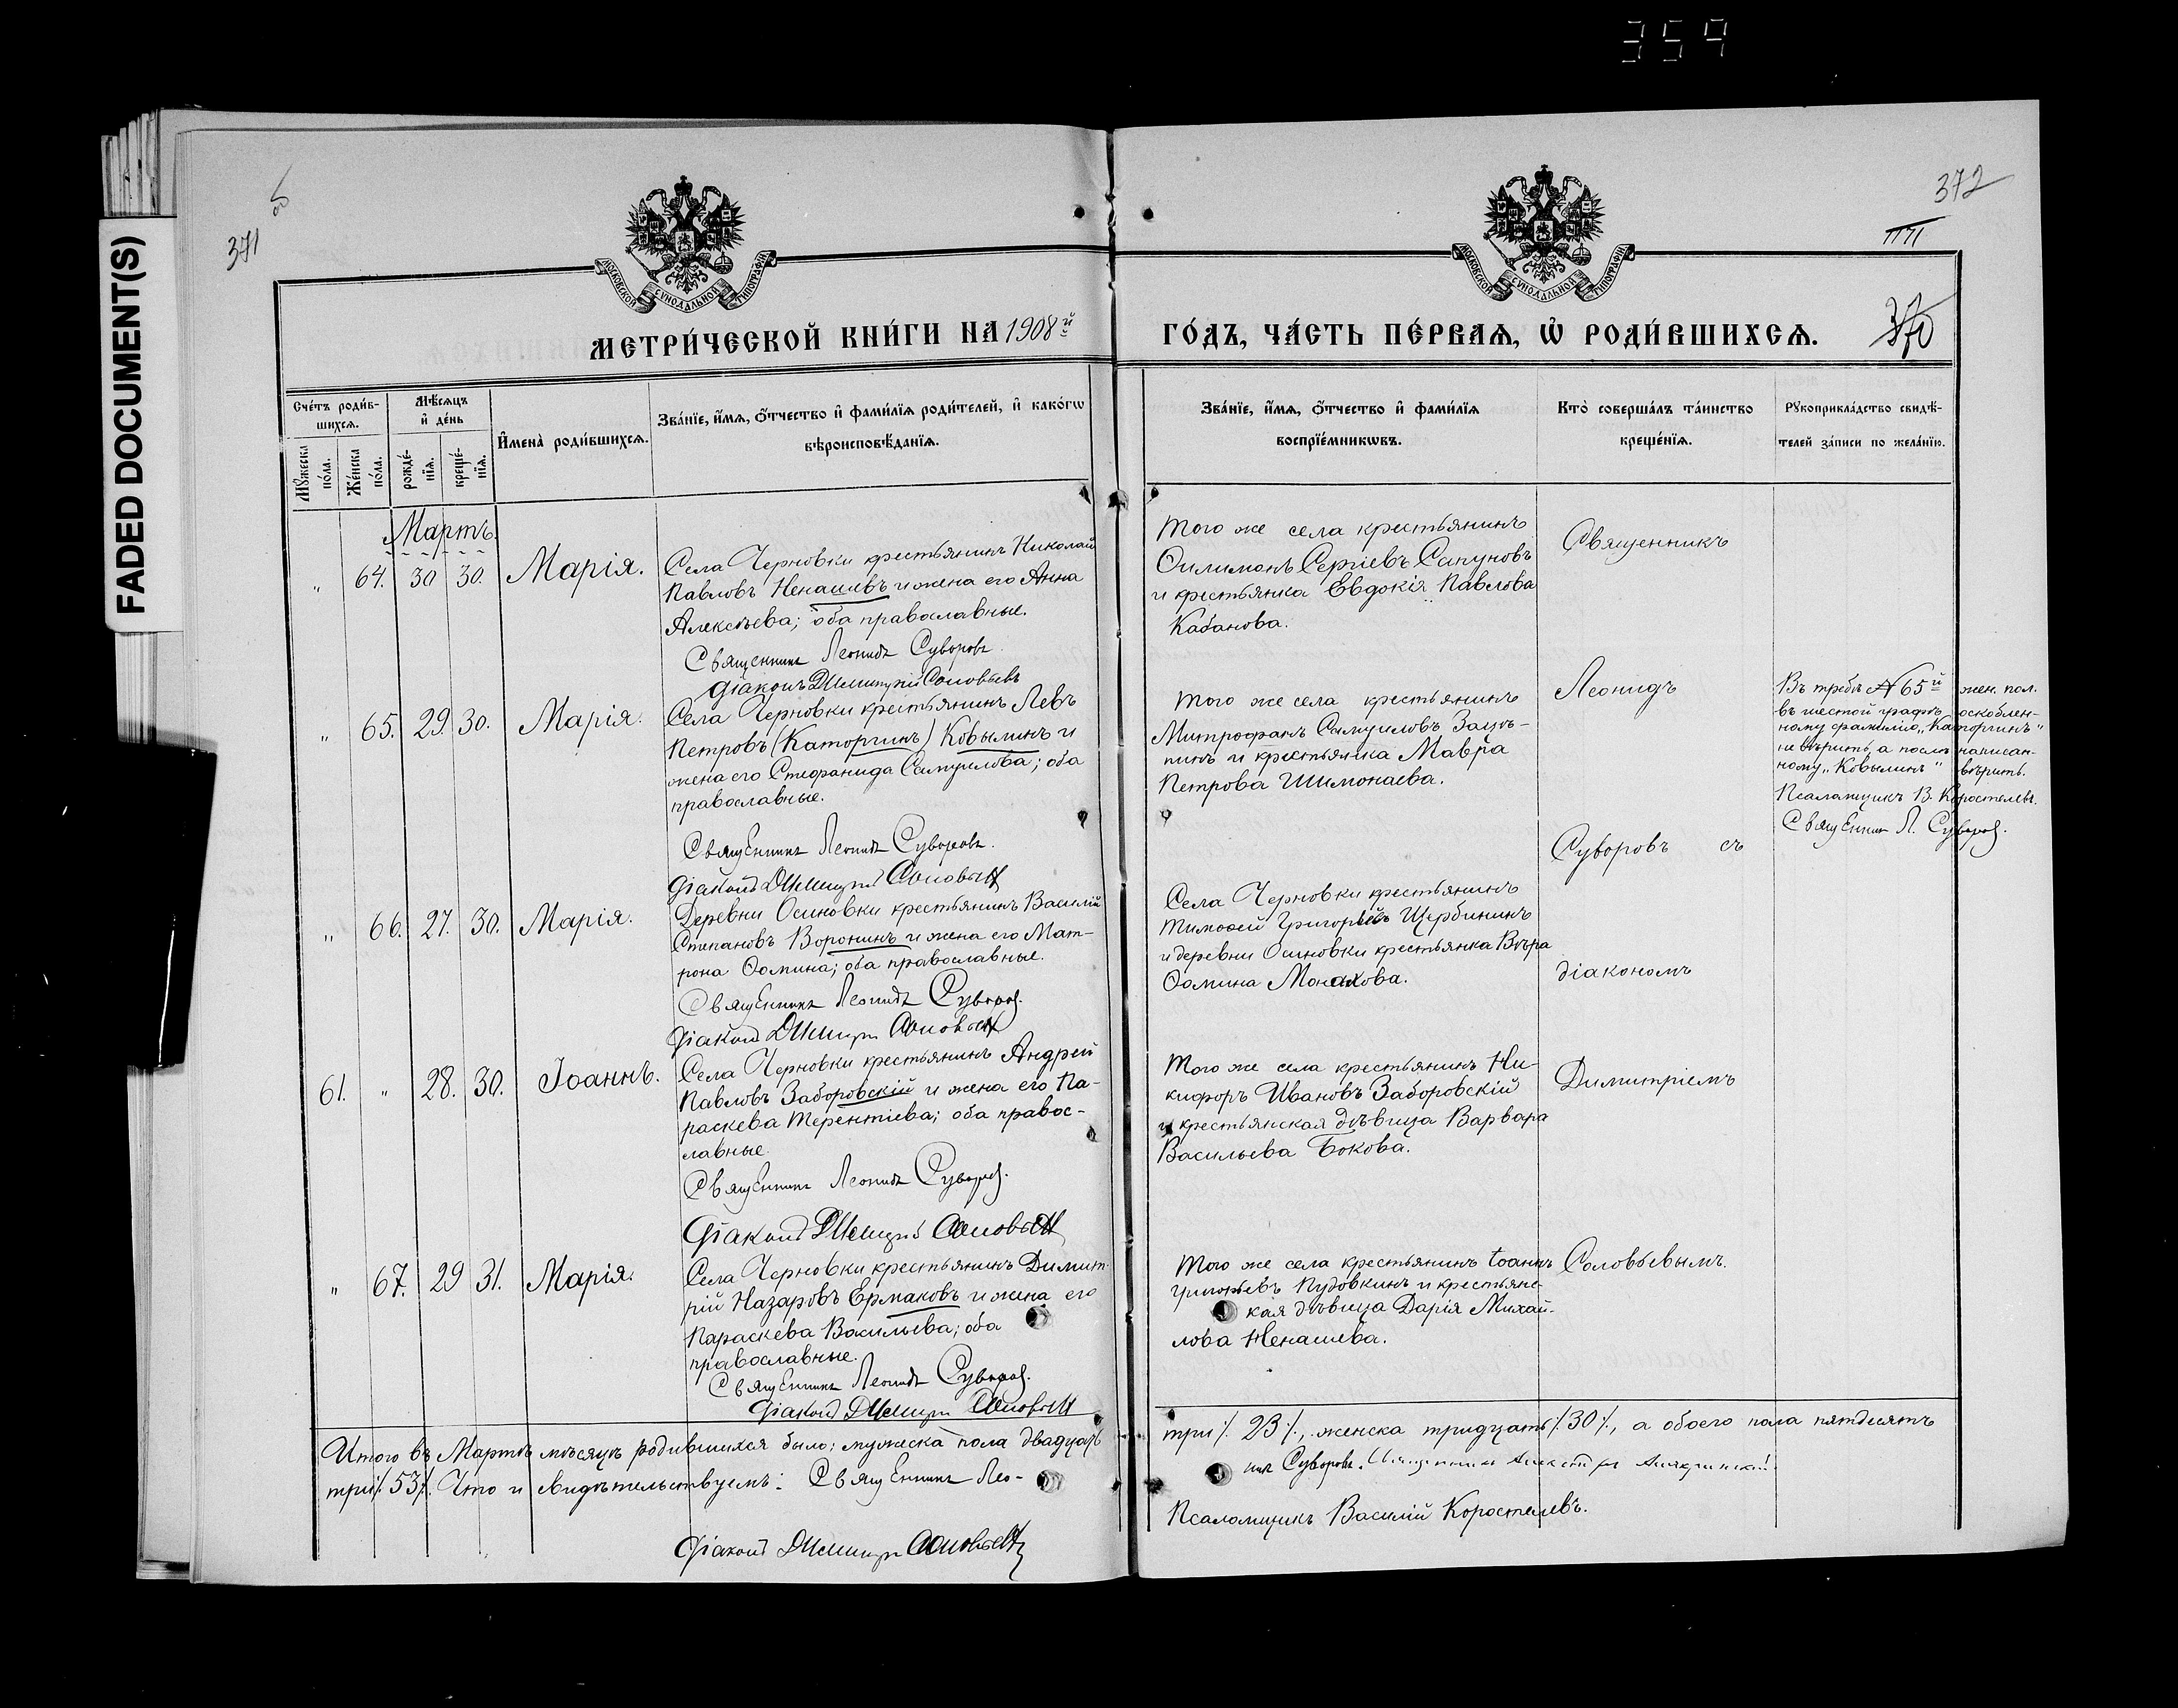 359
FADED DOCUMENT(S)
об
371
372
МОСКОВСКОЙ СѴНОДАЛЬНОЙ ТИПОГРАФІИ
МОСКОВСКОЙ СѴНОДАЛЬНОЙ ТИПОГРАФІИ
МЕТРИ́ЧЕСКОЙ КНИ́ГИ НА 1908й
ГО́ДЪ, ЧА́СТЬ ПЕ́РВАѦ, Ѿ РОДИ́ВШИХСѦ.
370
Сче́тъ роди́в-
шихсѧ.
Мꙋжеска по́ла.
Же́нска по́ла.
Мѣ́сѧцъ
и҆ де́нь
рожде́-
нїѧ.
креще́-
нїѧ.
И҆мена̀ роди́вшихсѧ.
Зва́нїе, и҆́мѧ, ѻ҆́тчество и҆ фами́лїѧ роди́телей, и҆ како́гѡ
вѣроисповѣ́данїѧ.
Зва́нїе, и҆́мѧ, ѻ҆́тчество и҆ фами́лїѧ
воспрїе́мникѡвъ.
Кто̀ соверша́лъ та́инство
креще́нїѧ.
Рꙋкоприкла́дство свидѣ́-
телей за́писи по жела́нїю.
Мартъ
" 64. 30 30. Марія.
Села Черновки крестьянинъ Николай
Павловъ Ненашевъ и жена его Анна
Алексѣева; оба православные.
Священникъ Леонидъ Суворовъ
Діаконъ Димитрій Соловьевъ
Того же села крестьянинъ
Филимонъ Сергіевъ Сапуновъ
и крестьянка Евдокія Павлова
Кабанова.
Священникъ
" 65. 29. 30. Марія.
Села Черновки крестьянинъ Левъ
Петровъ (Каторгинъ) Кобылинъ и
жена его Стефанида Самуилова; оба
православные.
Священникъ Леонидъ Суворовъ.
Діаконъ Димитрій Соловьевъ
Того же села крестьянинъ
Митрофанъ Самуиловъ Зацѣ-
пинъ и крестьянка Мавра
Петрова Шимонаева.
Леонидъ
Въ требѣ №65й жен. пол.
въ шестой графѣ оскоблен-
ному фамилію „Каторгинъ"
не вѣрить, а послѣ написан-
ному „Кобылинъ" вѣрить.
Псаломщикъ В. Коростелевъ.
Священникъ Л. Суворовъ.
Суворовъ съ
" 66. 27. 30. Марія.
Деревни Осиновки крестьянинъ Василій
Степановъ Воронинъ и жена его Мат-
рона Ѳомина; оба православные.
Священникъ Леонидъ Суворовъ.
Діаконъ Димитрій Соловьевъ
Села Черновки крестьянинъ
Тимоѳей Григорьевъ Щербининъ
и деревни Осиновки крестьянка Вѣра
Ѳомина Монахова.
діакономъ
61. " 28. 30. Іоаннъ.
Села Черновки крестьянинъ Андрей
Павловъ Заборовскій и жена его Па-
раскева Терентіева; оба правос-
лавные.
Священникъ Леонидъ Суворовъ.
Діаконъ Димитрій Соловьевъ
Того же села крестьянинъ Ни-
кифоръ Ивановъ Заборовскій
и крестьянская дѣвица Варвара
Васильева Бокова.
Димитріемъ
" 67. 29 31. Марія.
Села Черновки крестьянинъ Димит-
рій Назаровъ Ермаковъ и жена его
Параскева Васильева; оба
православные.
Священникъ Леонидъ Суворовъ.
Діаконъ Димитрій Соловьевъ
Того же села крестьянинъ Іоаннъ
Григорьевъ Пудовкинъ и крестьянс-
кая дѣвица Дарія Михай-
лова Ненашева.
Соловьевымъ.
Итого въ Мартѣ мѣсяцѣ родившихся было: мужеска пола двадцать
три /. 23 /., женска тридцать /. 30 /., а обоего пола пятдесятъ
три /. 53 /. Что и свидѣтельствуемъ: Священникъ Лео-
нидъ Суворовъ. Священникъ
Псаломщикъ Василій Коростелевъ.
Діаконъ Димитрій Соловьевъ